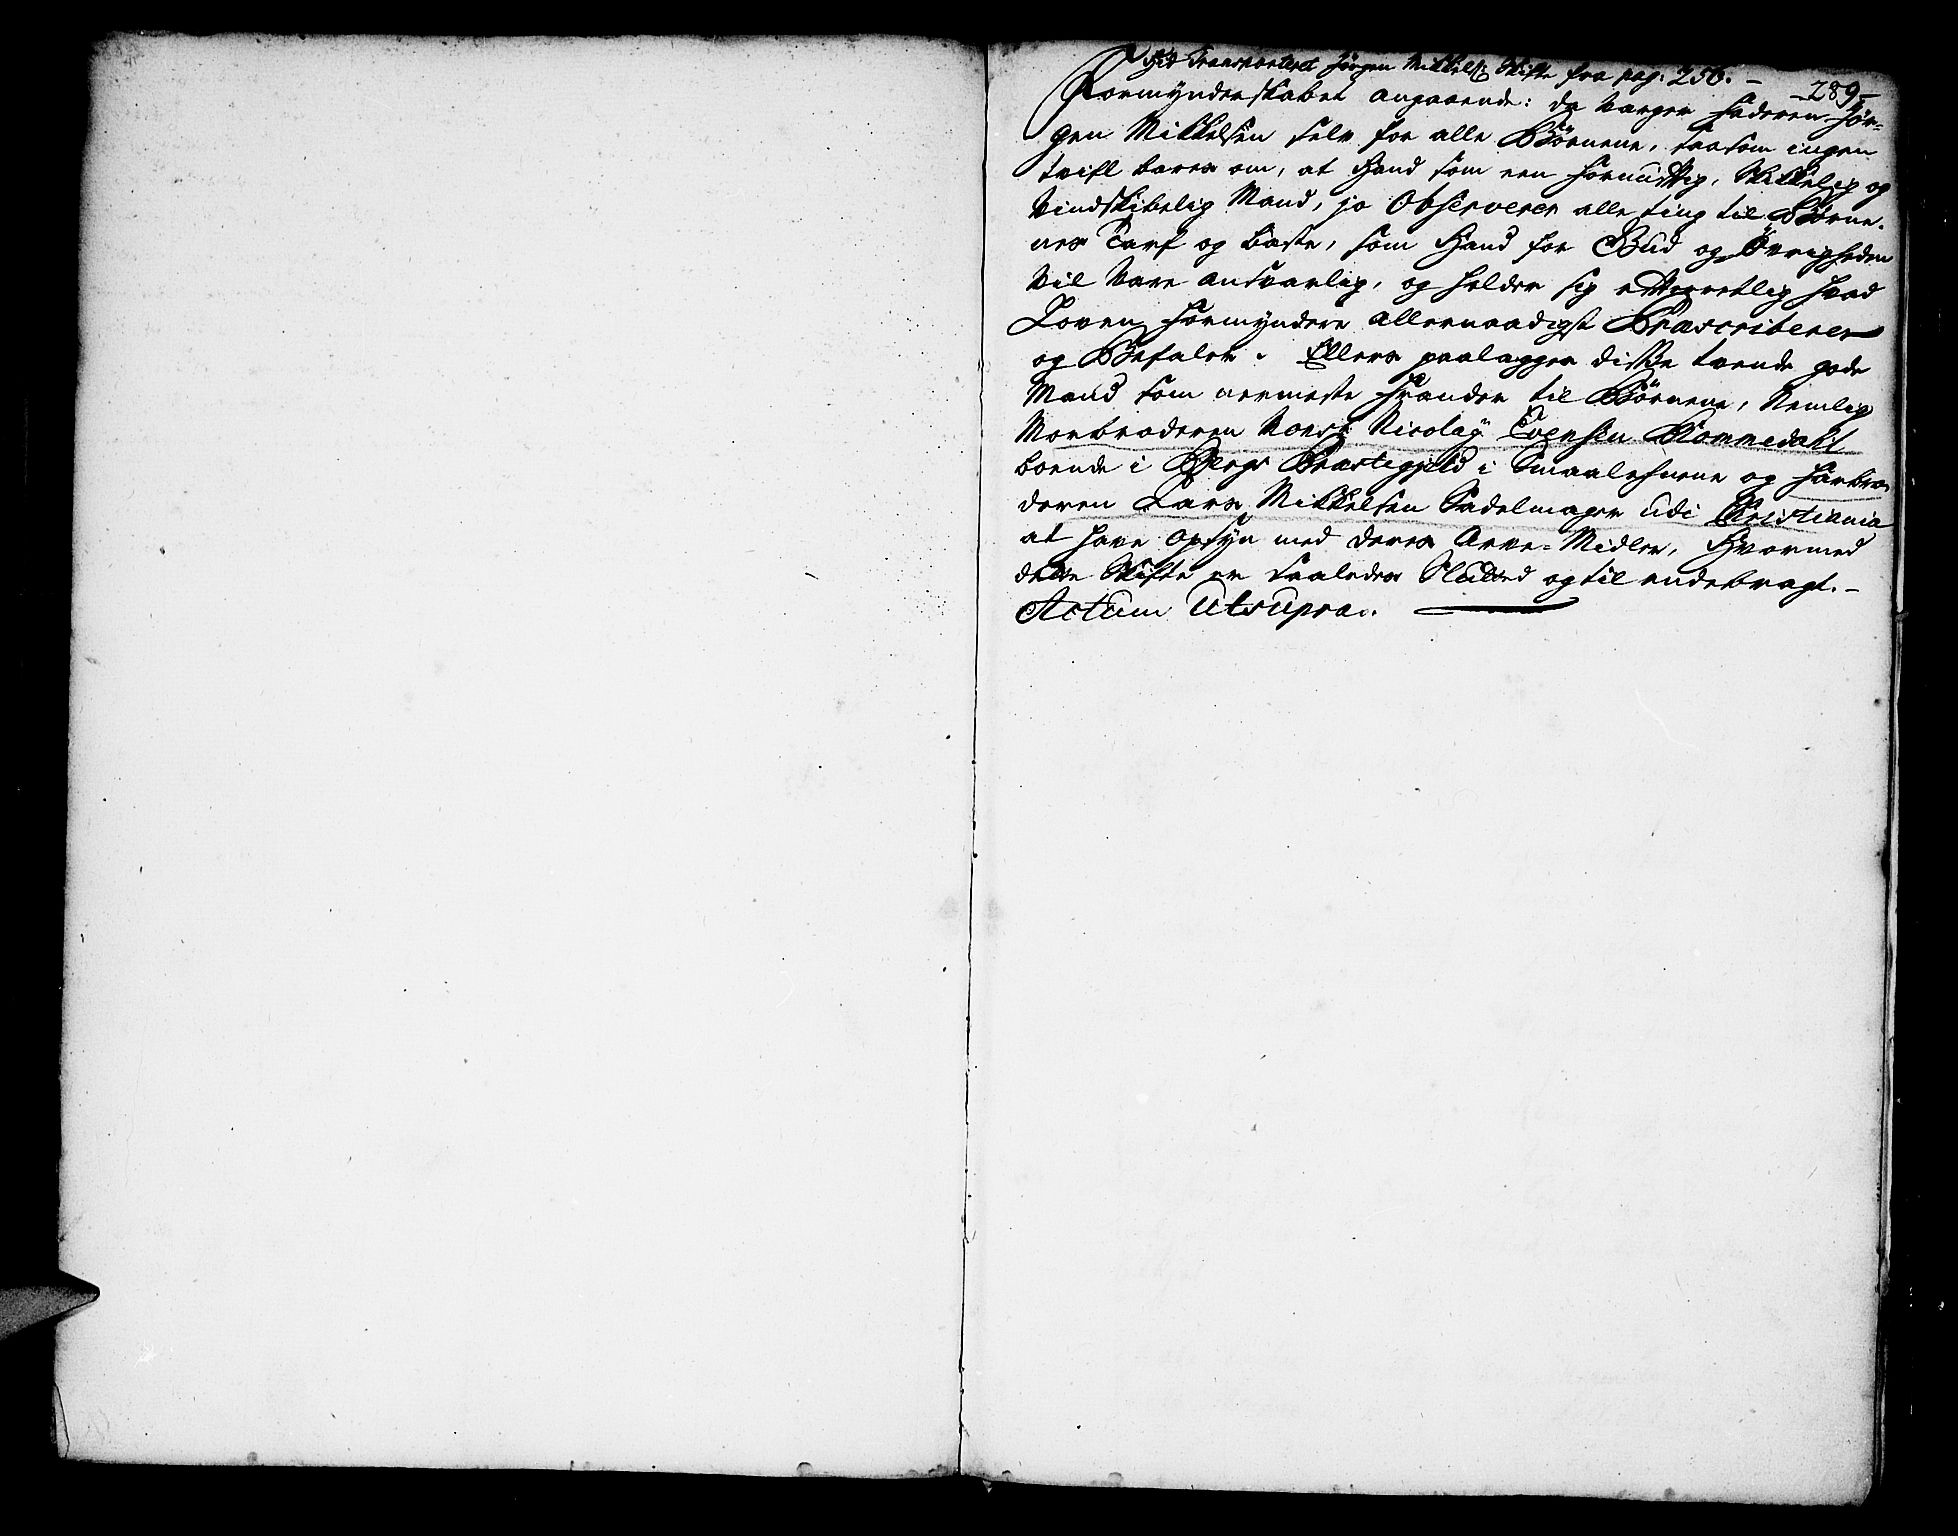 Hid Transporteret Jørgen Mikkels: Skifte fra pag: 256. –
– 289 –
Formynderskabet angaaende: da Værger Faderen Jør-
gen Mikkelsen selv for alle Børnene, saasom ingen
tvifl bæres om, at Hand som een fornuftig, Skikkelig og
Vindskibelig Mand, jo Observerer alle ting til Børne-
nes Tarf og bæste, som Hand for Gud og Øvrigheden
vil være ansvarlig, og holder sig efterretlig hvad
Loven Formyndere allernaadigst Præscriberer
og Befaler. Ellers paalægges disse tvende gode
Mænd som nermeste Frænder til Børnene, Nemlig
Morbroderen Monsr Nicolaÿ Evensen Kommedahl
boende i Bergs Præstegjeld i Smaalehnene og Farbro-
deren Lars Mikkelsen Sadelmager udi Christiania
at have Opsÿn med deres Arve-Midler, Hvormed
dette Skifte er saaledes Slutted og til endebragt. –
Actum Ut supra.